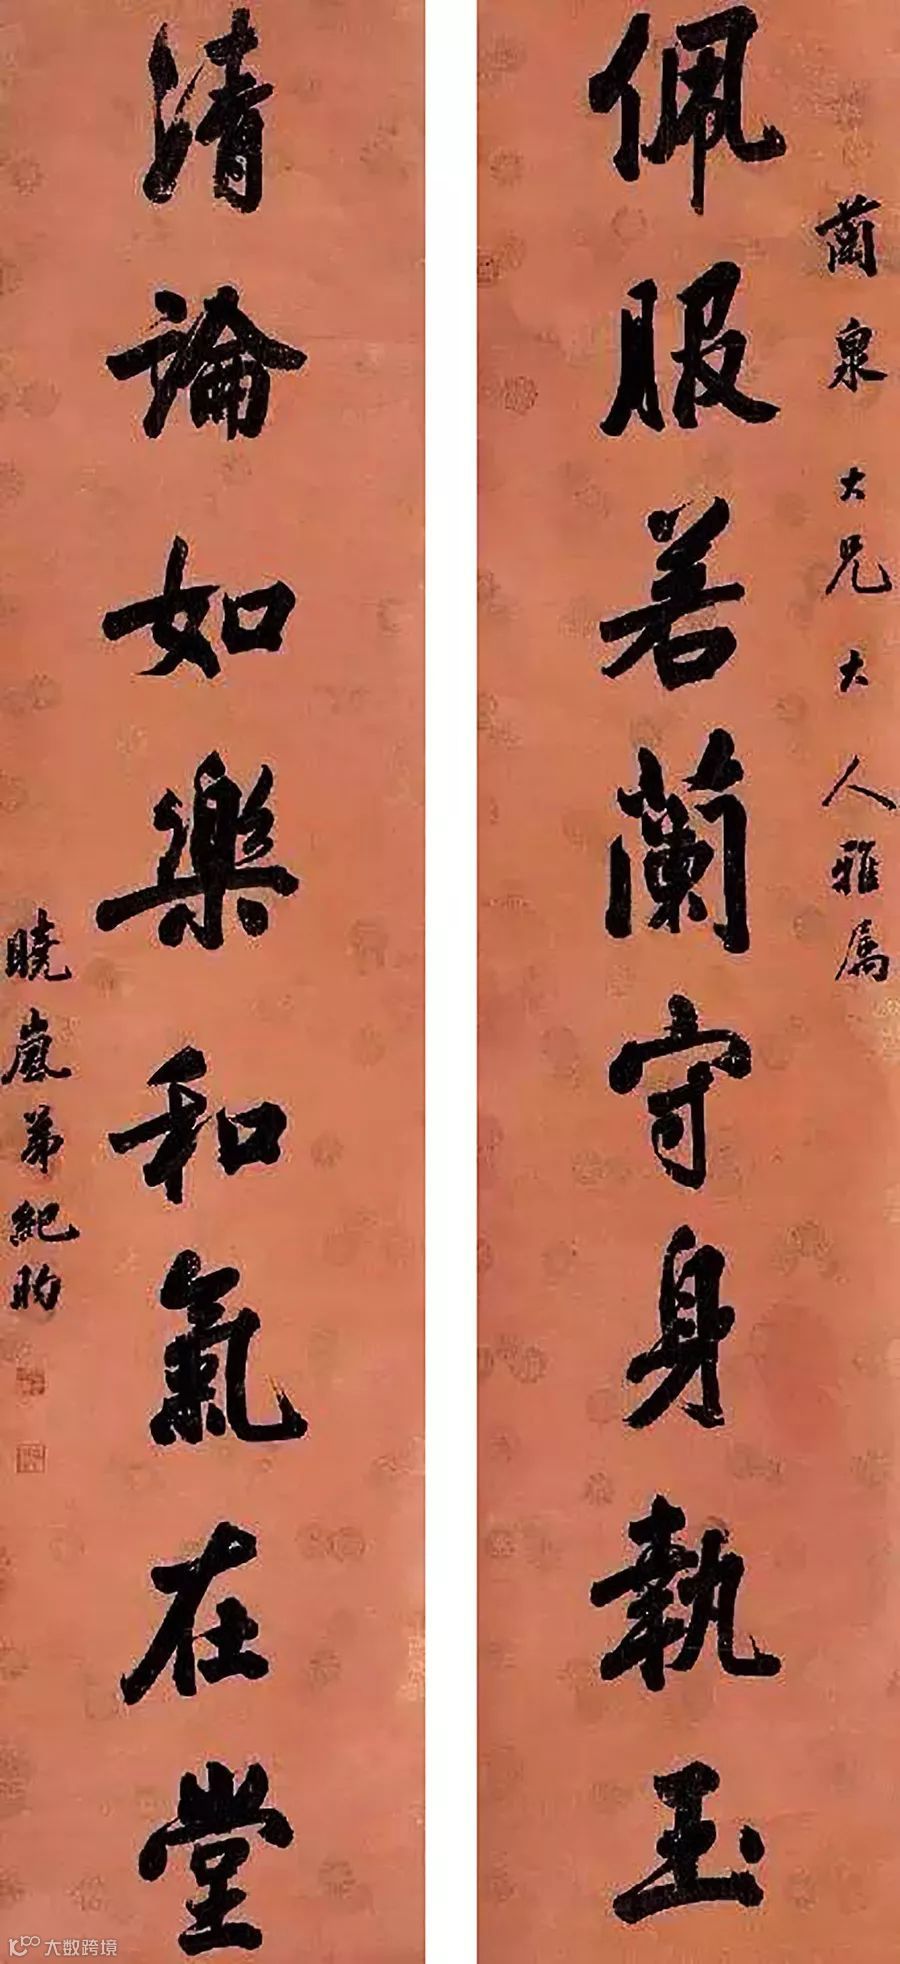 蘭泉大兄大人雅属
佩服若蘭守身執玉
清論如樂和氣在堂
曉嵐弟紀昀
大数跨境